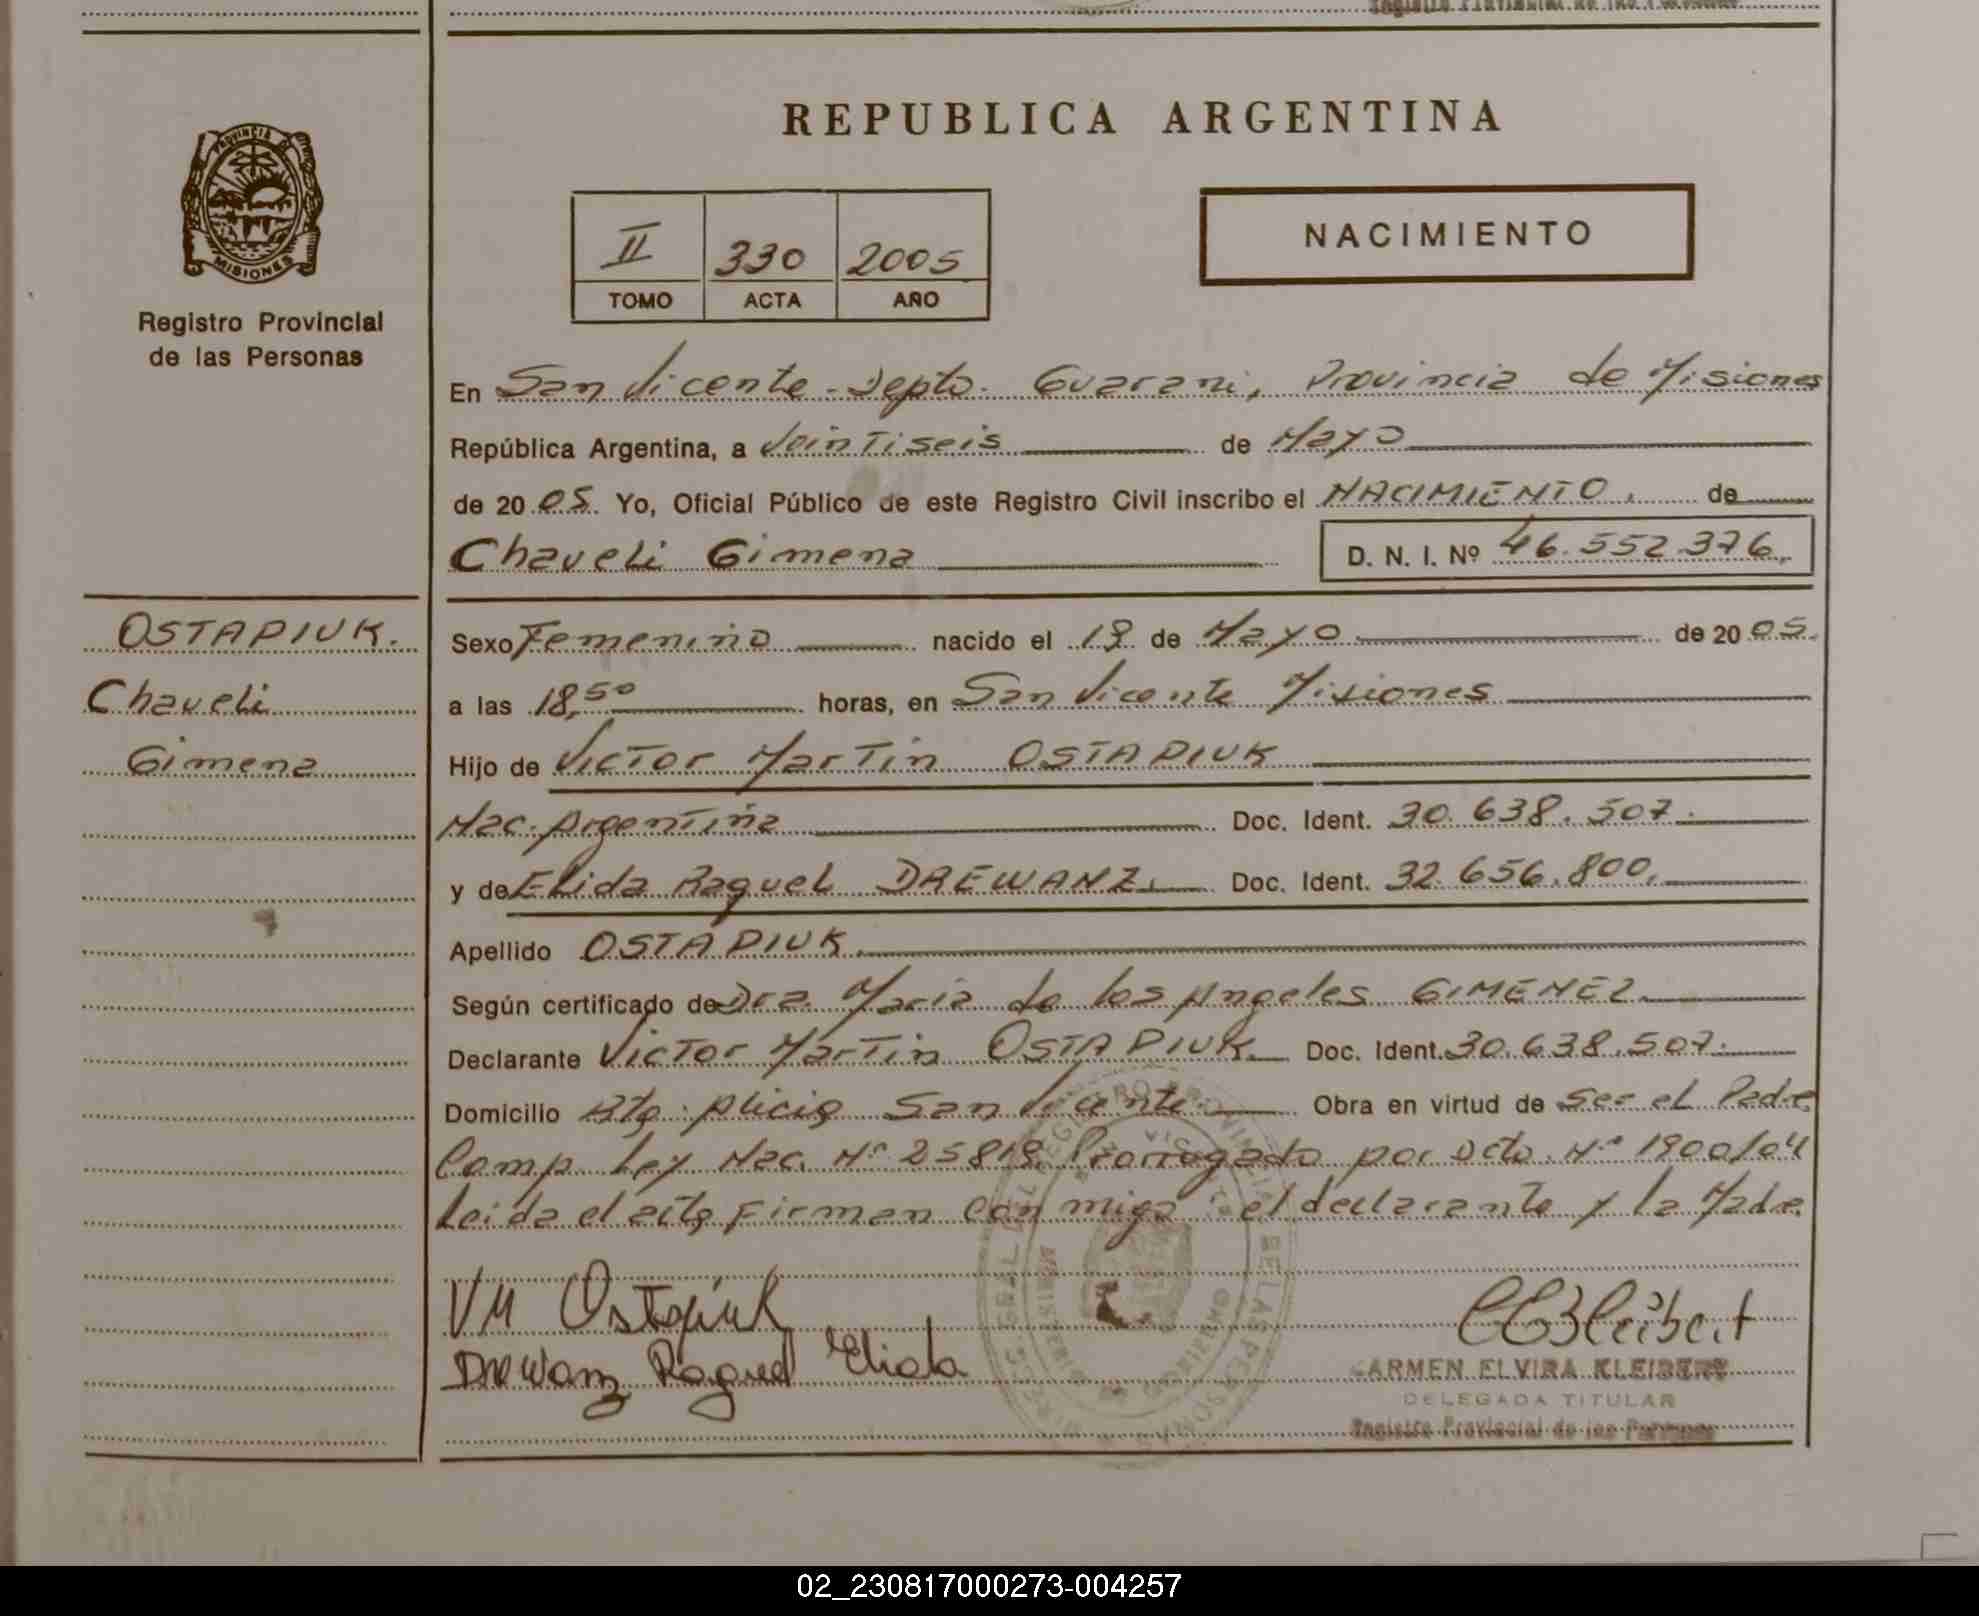 REPUBLICA ARGENTINA
PROVINCIA DE
MISIONES
Registro Provincial
de las Personas
II 330 2005
TOMO ACTA AÑO
NACIMIENTO
En San Vicente - Depto. Guarani, Provincia de Misiones
República Argentina, a Veintiseis de Mayo
de 20 05. Yo, Oficial Público de este Registro Civil inscribo el NACIMIENTO. de
Chaveli Gimena D. N. I. Nº 46.552.376.
OSTAPIUK.
Chaveli
Gimena
Sexo Femenino nacido el 19 de Mayo de 20 05.
a las 18,50 horas, en San Vicente Misiones
Hijo de Victor Martin OSTAPIUK
Nac. Argentina Doc. Ident. 30.638.507.
y de Elida Raquel DREWANZ. Doc. Ident. 32.656.800.
Apellido OSTAPIUK.
Según certificado de Dra. Maria de los Angeles GIMENEZ.
Declarante Victor Martin OSTAPIUK. Doc. Ident. 30.638.507.
Domicilio San Vicente Obra en virtud de Ser el Padre
Comp. Ley Nac. Nº 25819. Prorrogado por Dcto. Nº 1900/04
Leida el acta firman conmigo el declarante y la Madre.
VM Ostapiuk
Drewanz Raquel Elida
CEKleibert
CARMEN ELVIRA KLEIBERT
DELEGADA TITULAR
Registro Provincial de las Personas
02_230817000273-004257